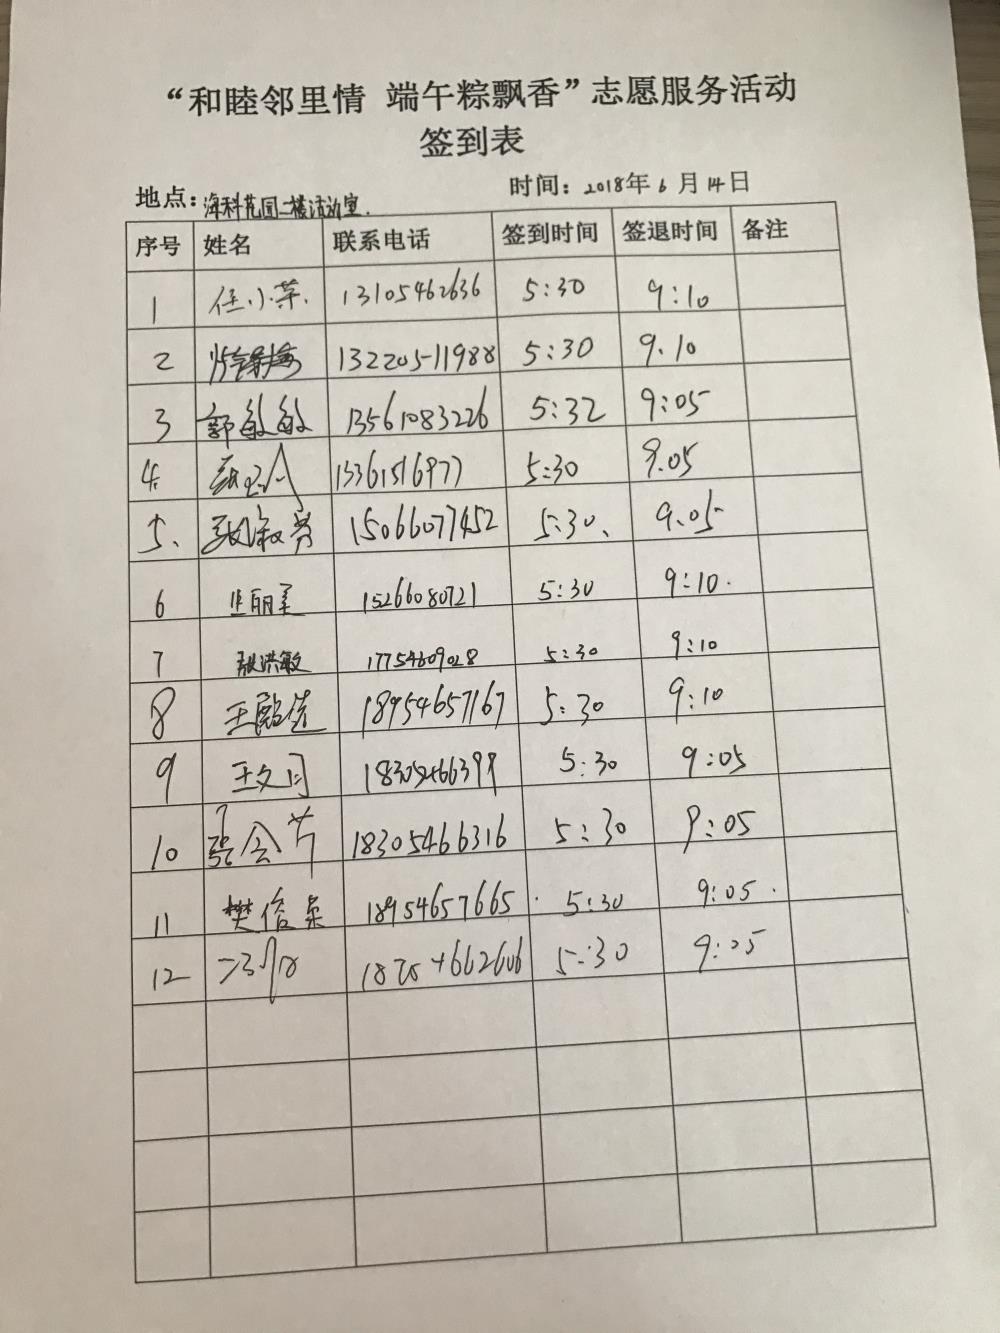 “和睦邻里情 端午粽飘香”志愿服务活动
签到表
地点：海科花园二楼活动室. 时间：2018年6月14日
序号 姓名 联系电话 签到时间 签退时间 备注
1 任小苹. 13105462636 5:30 9:10
2 13220511988 5:30 9.10
3 郭敏敏 13561083226 5:32 9:05
4. 5:30 9.05
5、 张淑芳 15066077452 5:30、 9.05
6 丽 15266080721 5:30 9:10.
7 张洪敏 17754609028 5:30 9:10
8 王 18954657167 5:30 9:10
9 王文 5:30 9:05
10 张会芳 18305466316 5:30 9:05
11 樊俊英 18954657665. 5:30 9:05.
12 5:30 9:05